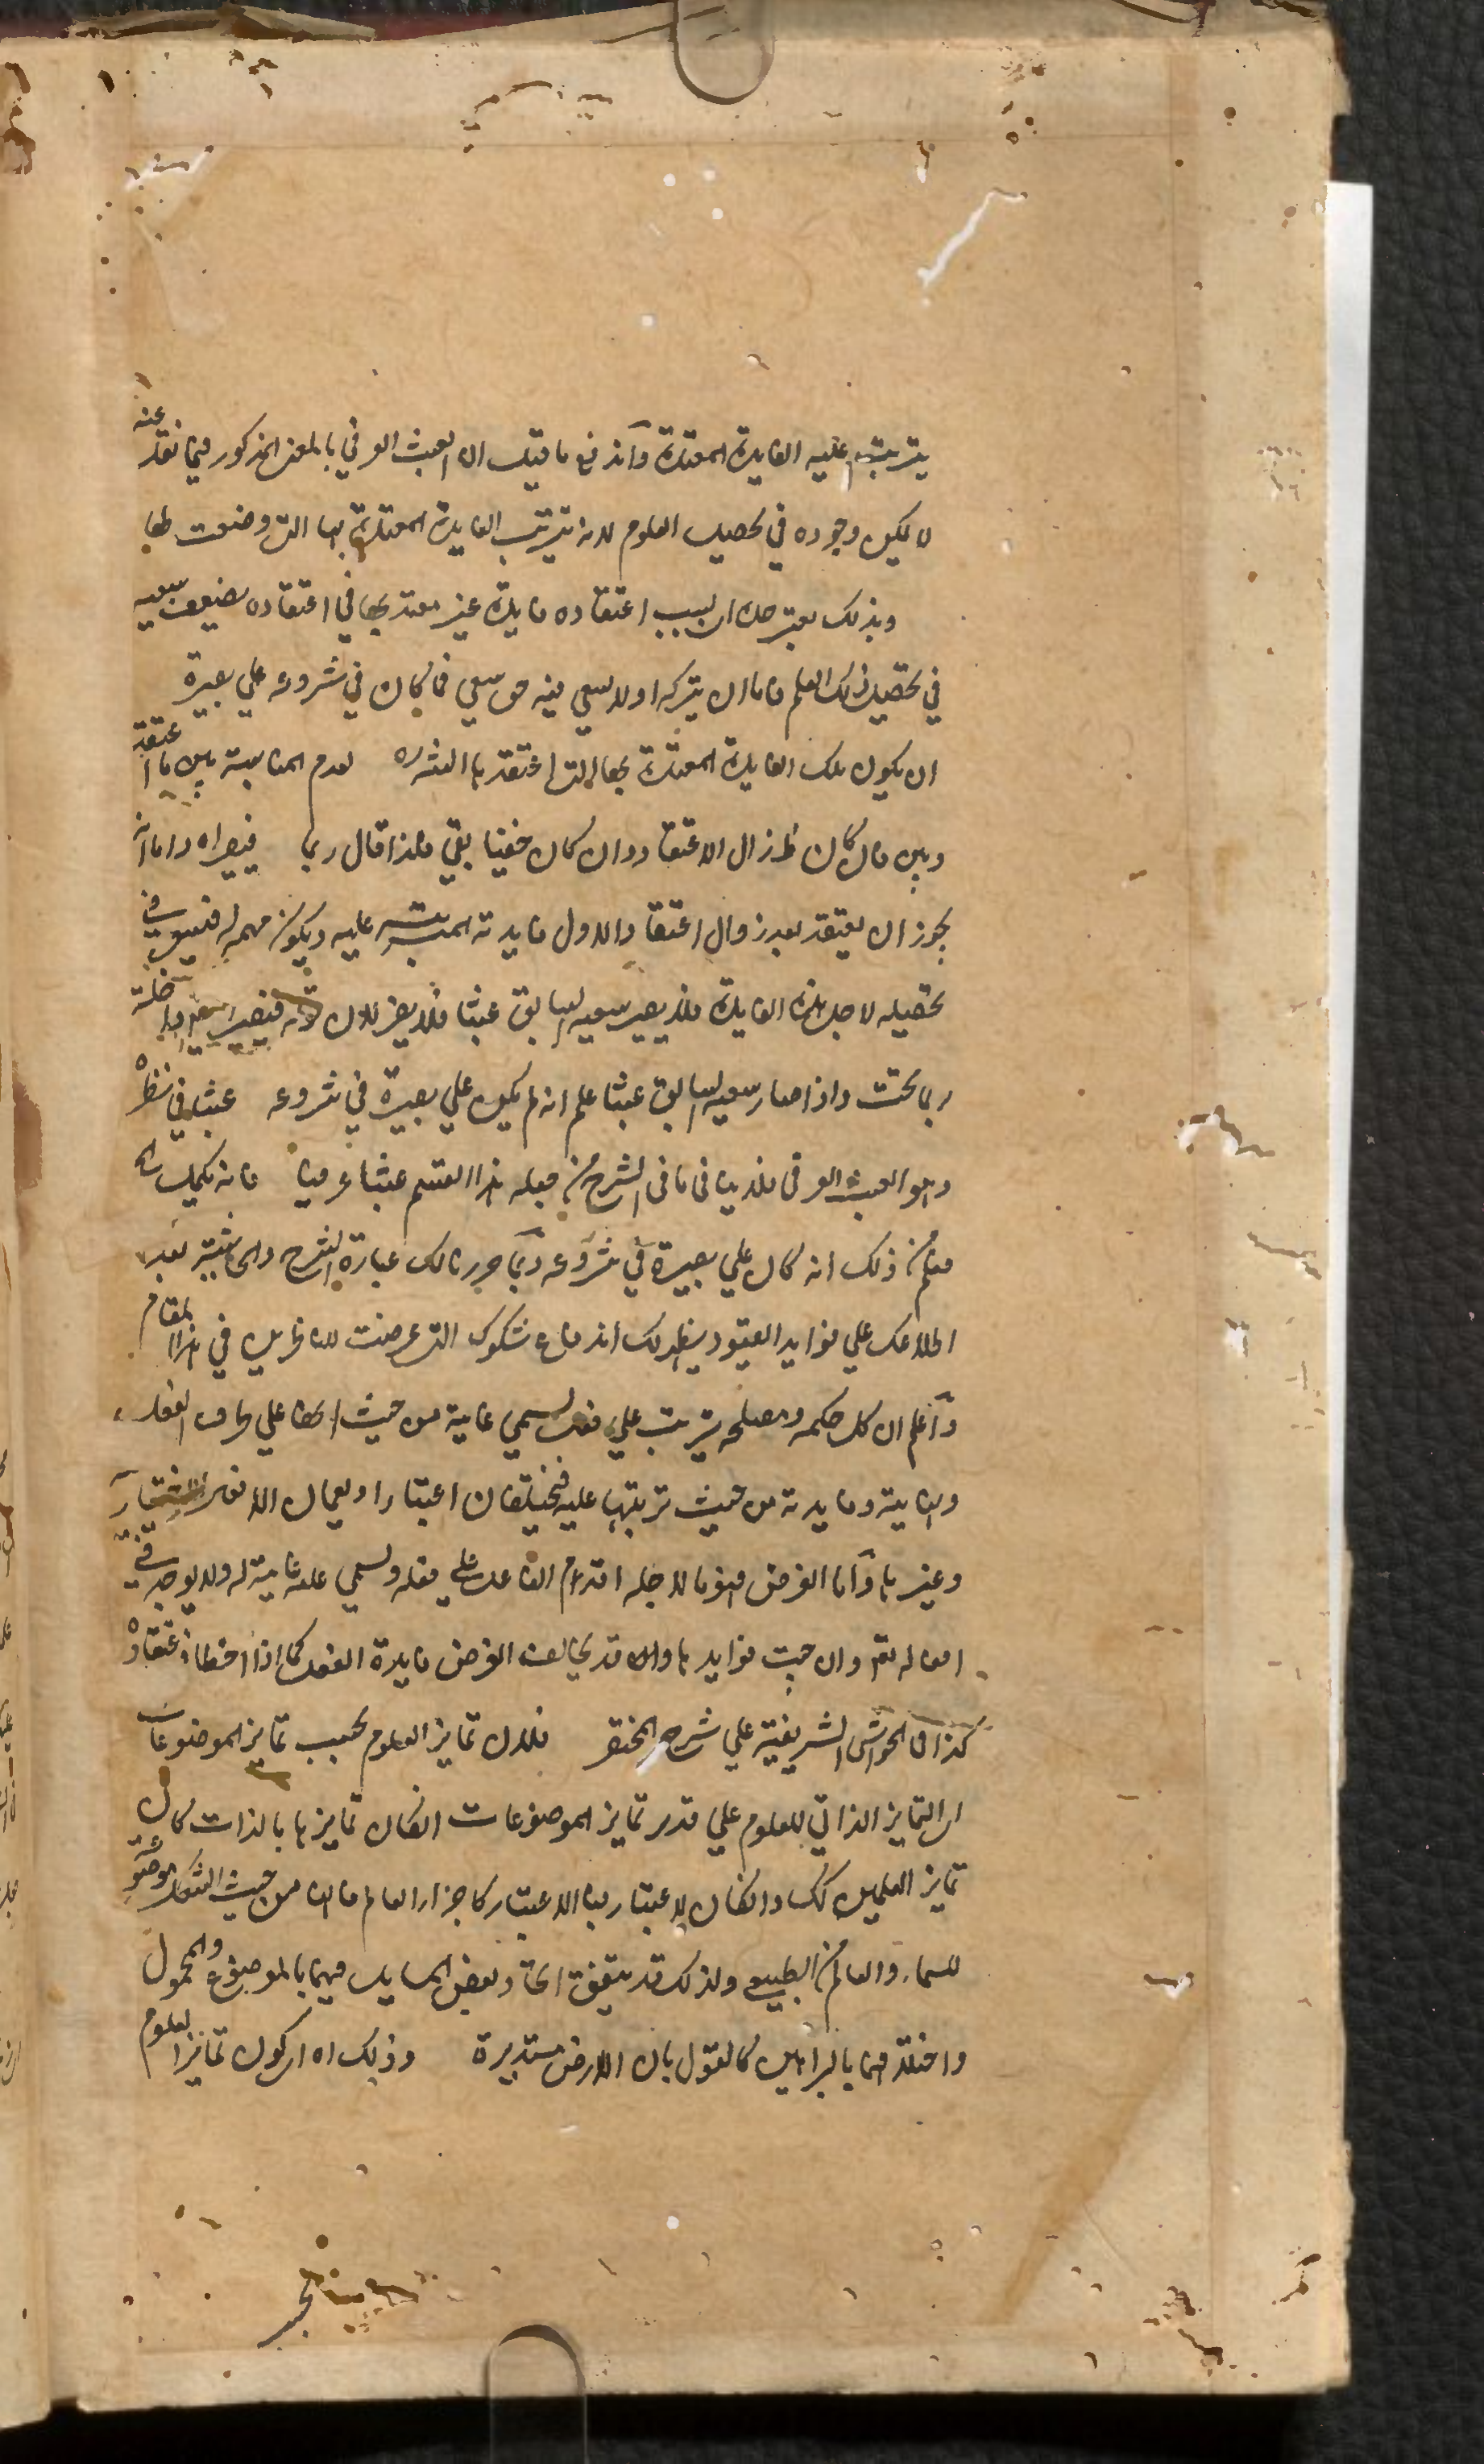 يترتب عليه الفايدة المعتدة واندفع ما قيل ان العبث العرفي بالمعنى المذكور فيما نقل عنه
لا يمكن وجوده في تحصيل العلوم لانه يترتب الفايدة المعتدة بها التي وضعت لها
وبذلك يفتر جده اي بسبب اعتقاده فايدة غير معتد بها في اعتقاده يضعف سعيه
في تحصيل ذلك العلم فاما ان يتركه او لا يسعى فيه حق سعي فما كان في شروعه على بصيرة
ان يكون تلك الفايدة المعتدة بها التي اعتقد بها لعدم المناسبة بين ما اعتقد
وبين فان كان زال الاعتقاد وان كان خفيا بقي فلذا قال ربما فيصر اه واما انه
يجوز ان يعتقد بعد زوال اعتقاد الاول فايدته المترتبة عليه ويكون مهمة له فيسعى في
تحصيله لاجل هذه الفايدة فلا يصير سعيه السابق عبثا فلا يضر لان
ربما تحت واذا صار سعيه السابق عبثا علم انه لم يكن على بصيرة في شروعه عبثا في نظره
وهو العبث العرفي فلا ينافي ما في الشرح من جعله هذا القسم عبثا عرفيا فانه يكمل
فعلم من ذلك انه كان على بصيرة في شروعه وبما حررنا لك عبارة الشرح والحاشية بعد
اطلاعك على فوايد القيود يظهر لك اندفاع شكوك التي عرضت للناظرين في هذا المقام
واعلم ان كل حكمة ومصلحة يترتب على فعل يسمى غاية من حيث انها على طرف الفعل
ونهايته وفايدته من حيث ترتبها عليه فيختلفان اعتبارا ويعمان الافعال الاختيارية
وغيرها واما الغرض فهو ما لاجله اقدام الفاعل على فعله ويسمى علة غائية له ولا يوجد في
افعاله تعالى وان جمت فوايدها وقد يخالف الغرض فايدة الفعل كما اذا اخطأ في اعتقاده
كذا في الحواشي الشريفية على شرح المختصر فلان تمايز العلوم بحسب تمايز الموضوعات
اي التمايز الذاتي للعلوم على قدر تمايز الموضوعات ان كان تمايزها بالذات كان
تمايز العلمين كك وان كان بالاعتبار فبالاعتبار كاجزاء العالم فانها من حيث الشكل موضوع
للسماء والعالم من الطبيعي ولذلك قد يتفق اتحاد بعض المسايل فيهما بالموضوع والمحمول
واختلافهما بالبراهين كالقول بان الارض مستديرة وذلك اه اي كون تمايز العلوم
بحسب